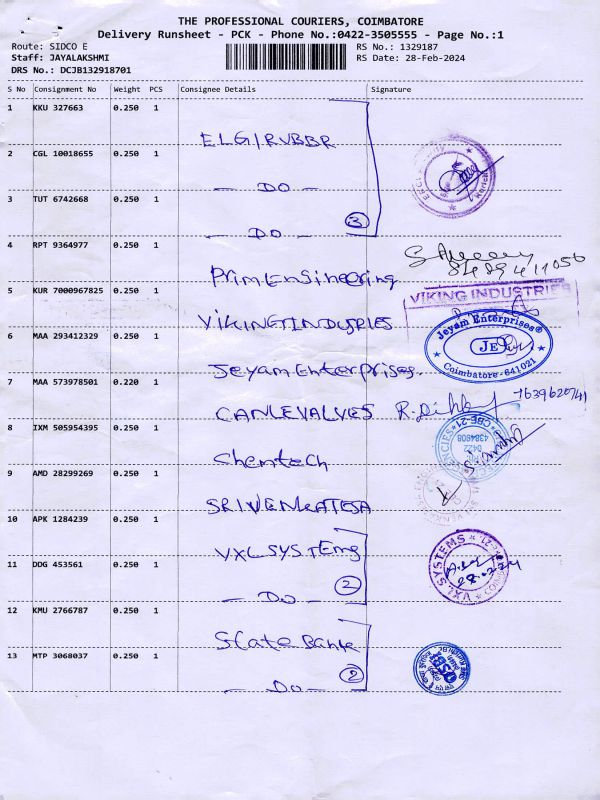 THE PROFESSIONAL COURIERS, COIMBATORE
Delivery Runsheet - PCK - Phone No.:0422-3505555 - Page No.:1
Route: SIDCO E RS No.: 1329187
Staff: JAYALAKSHMI RS Date: 28-Feb-2024
DRS No.: DCJB132918701
S No Consignment No Weight PCS Consignee Details Signature
1 KKU 327663 0.250 1 ELGI RUBBER
2 CGL 10018655 0.250 1 — DO —
3 TUT 6742668 0.250 1 — DO — 3
4 RPT 9364977 0.250 1 Prim Engineering
5 KUR 7000967825 0.250 1 VIKING INDUSTRIES VIKING INDUSTRIES
6 MAA 293412329 0.250 1 Jeyam Enterprises. Jeyam Enterprises® JE Coimbatore - 641021
7 MAA 573978501 0.220 1 CANLEVALVES 7639620741
8 IXM 505954395 0.250 1 Chemtech
9 AMD 28299269 0.250 1 SRI VENKATESA
10 APK 1284239 0.250 1 VXL SYSTEMS
11 DDG 453561 0.250 1 — DO — 2 VXL SYSTEMS
12 KMU 2766787 0.250 1 State Bank
13 MTP 3068037 0.250 1 — DO — 2